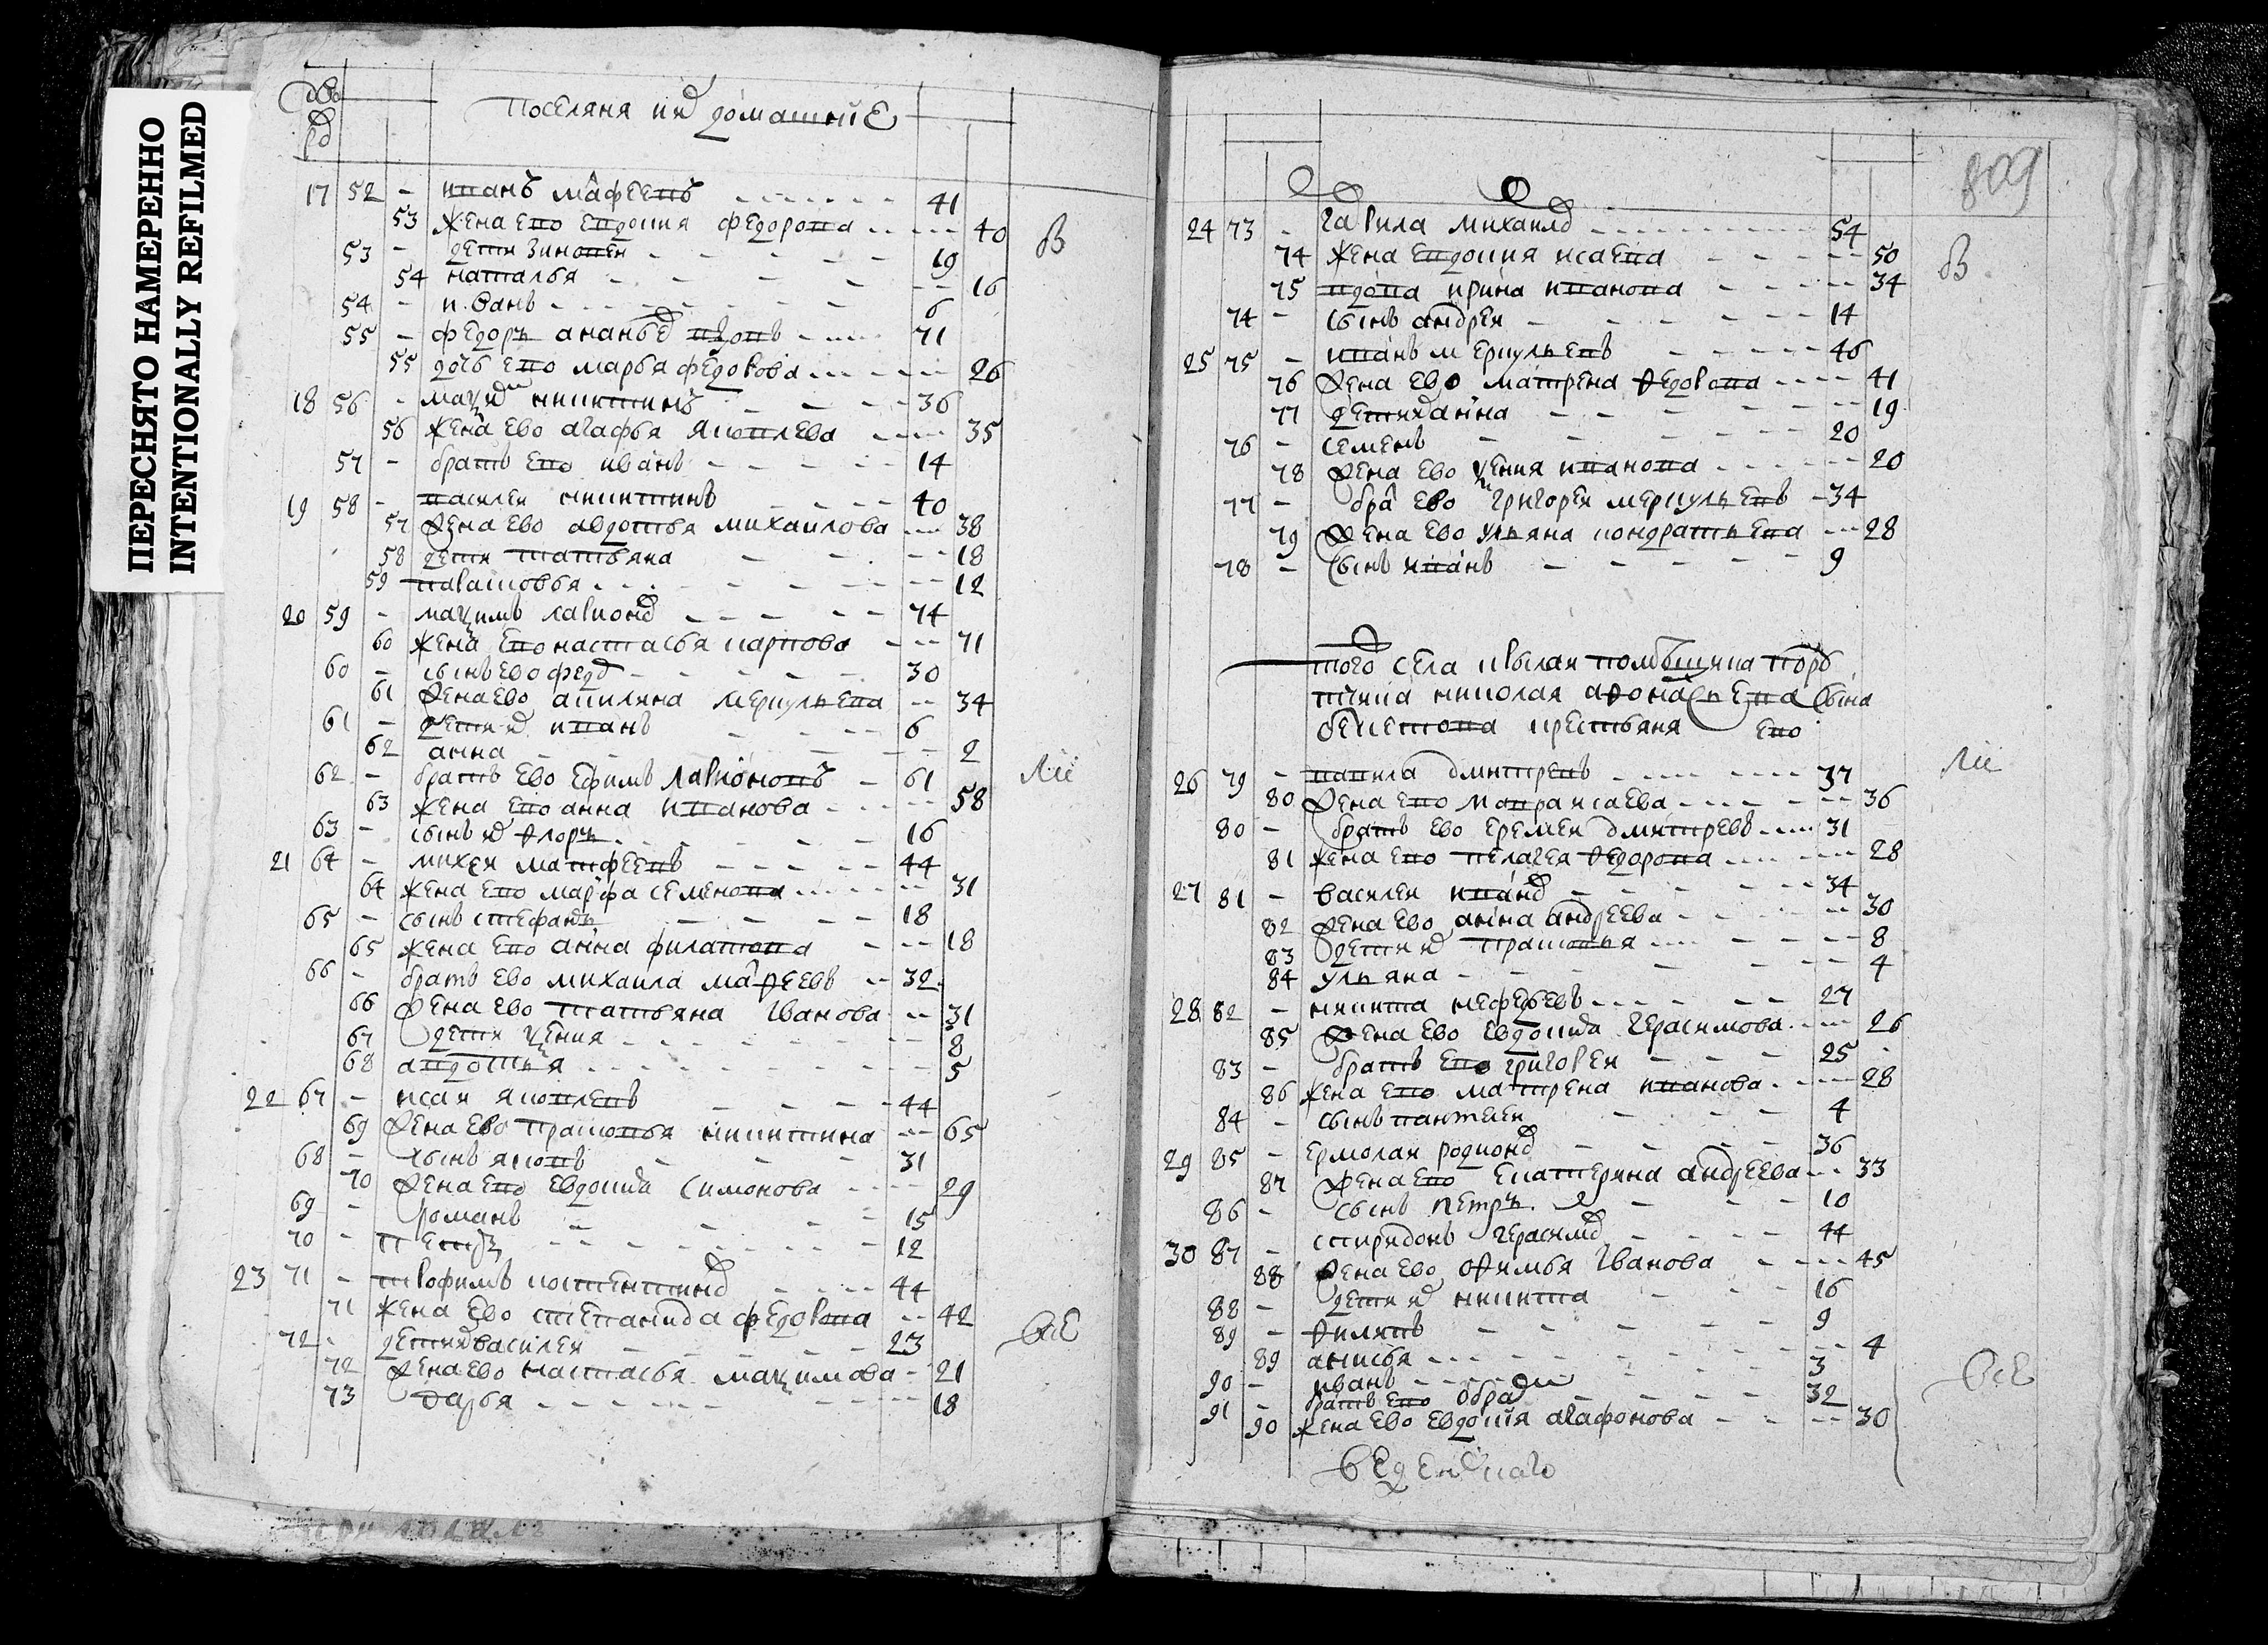 ПЕРЕСНЯТО НАМЕРЕННО
INTENTIONALLY REFILMED
поселяня их домашние
17 52 - иванъ мафеевъ 41
53 жена ево евдокия федорова 40
53 - дети зиновеи 19
54 наталья 16
54 - иванъ 6
55 - федоръ ананьев вдовъ 71
55 дочь ево марья федорова 26
18 56 - никитинъ 36
56 жена ево агафья яковлева 35
57 - братъ ево иванъ 14
19 58 - василеи никитинъ 40
57 жена ево авдотья михаилова 38
58 дети татьяна 18
59 парасковья 12
20 59 - максимъ ларионов 74
60 жена ево настасья карпова 71
60 - сынъ ево федор 30
61 жена ево акилина меркульева 34
61 - дети их иванъ 6
62 анна 2
62 - братъ ево ефимъ ларионовъ 61
63 жена ево анна иванова 58
63 - сынъ их флоръ 16
21 64 - михеи матфеевъ 44
64 жена ево марфа семенова 31
65 - сынъ стефанъ 18
65 жена ево анна филатова 18
66 - братъ ево михаила мафеевъ 32
66 жена ево татьяна иванова 31
67 дети ксения 8
68 авдотья 5
22 67 - исаи яковлевъ 44
69 жена ево прасковья никитина 65
68 - сынъ яковъ 31
70 жена ево евдокия симонова 29
69 - романъ 15
70 - петръ 12
23 71 - трофимъ костентинов 44
71 жена ево степанида федорова 42
72 - дети их василеи 23
72 жена ево настасья максимова 21
73 дарья 18
В
Ліі
Всѣ
809
24 73 - гаврила михаилов 54
74 жена евдокия исаева 50
75 вдова ирина иванова 34
74 - сынъ андреи 14
25 75 - иванъ меркульевъ 46
76 жена ево матрена федорова 41
77 дети их анна 19
76 - семенъ 20
78 жена ево ксения иванова 20
77 - брат ево григореи меркульевъ 34
79 жена ево ульяна кондратьева 28
78 - сынъ иванъ 9
того села крылаи помещика пору
тчика николая афонасьева сына
бекетова крестьяня ево
26 79 - вавила дмитревъ 37
80 жена ево мавра исаева 36
80 - братъ ево еремеи дмитревъ 31
81 жена ево пелагея федорова 28
27 81 - василеи иванов 34
82 жена ево анна андреева 30
83 дети их прасковья 8
84 ульяна 4
28 82 - никита нефедьевъ 27
85 жена ево евдокия герасимова 26
83 - братъ ево григореи 25
86 жена ево матрена иванова 28
84 - сынъ пантелеи 4
29 85 - ермолаи родионов 36
87 жена ево екатерина андреева 33
86 - сынъ петръ 10
30 87 - спиридонъ герасимов 44
88 жена ево офимья иванова 45
88 - дети их никита 16
89 - филипъ 9
89 анисья 4
90 - иванъ 3
91 - братъ ево 32
90 жена ево евдокия агафонова 30
В
Ліі
Всѣ